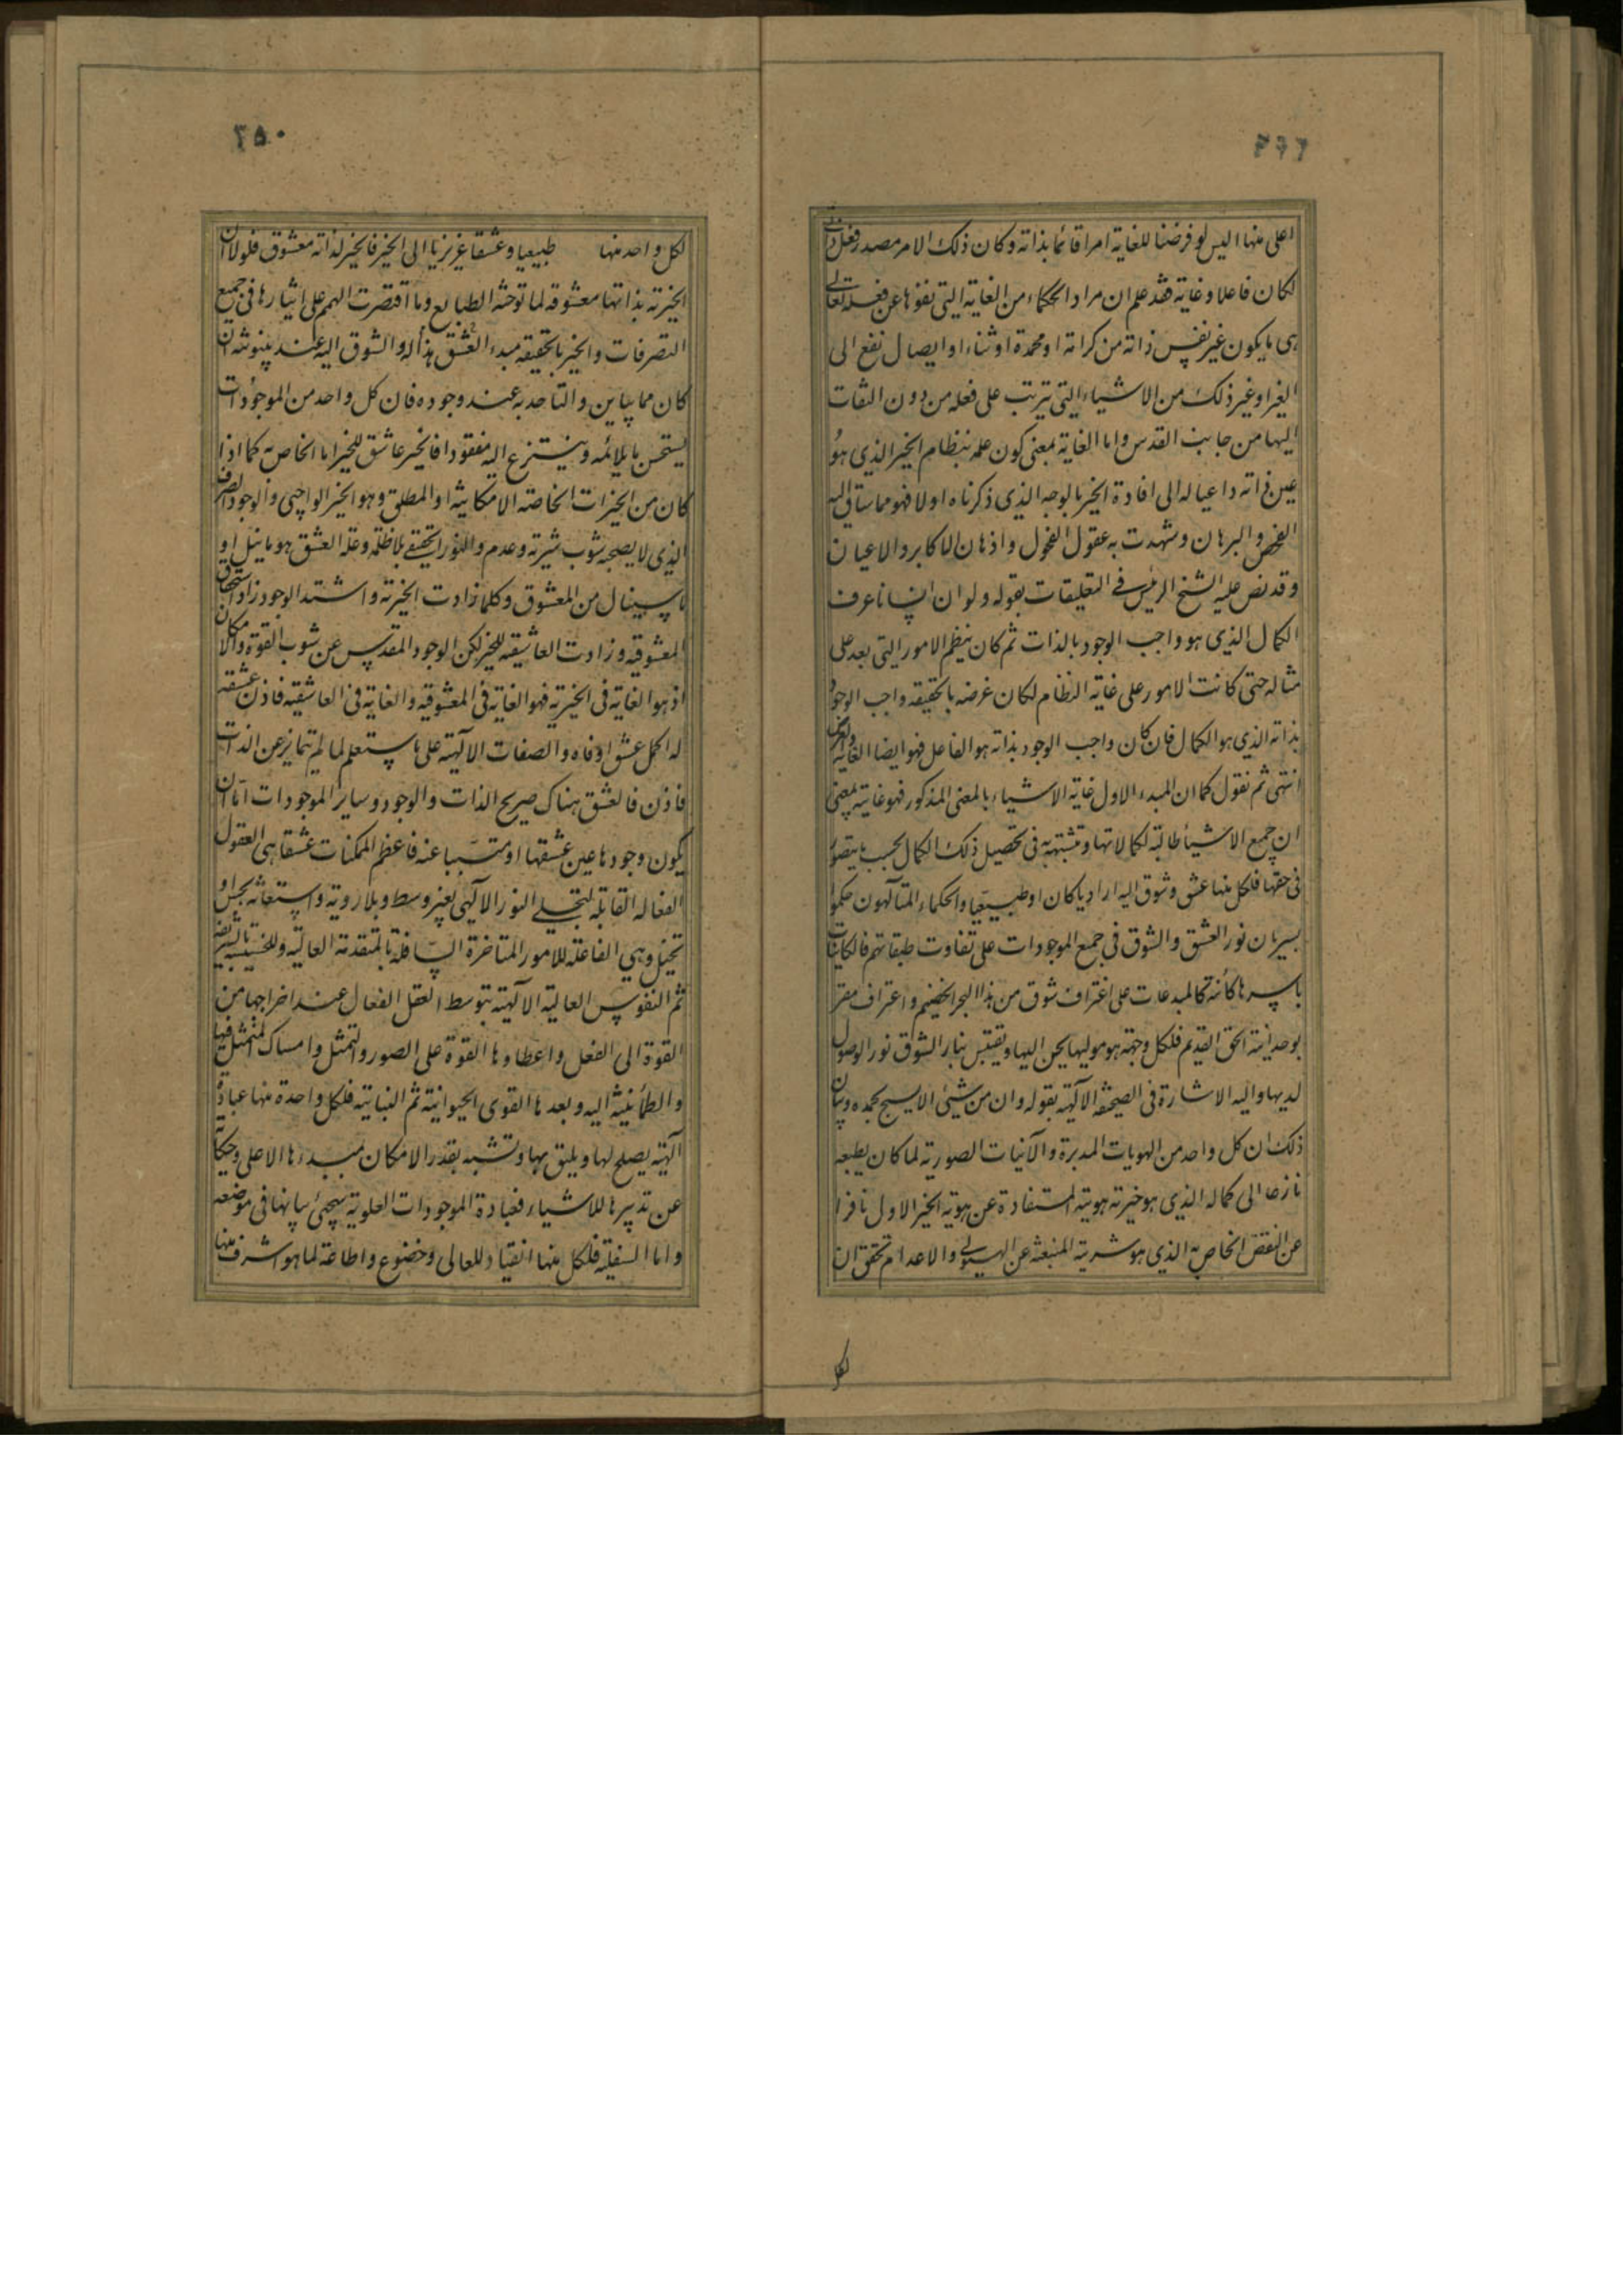 ٣٤٩
اعلى منها اليس لو فرضنا للغاية امرا قائما بذاته وكان ذلك الامر مصدر فعل
لكان فاعلا وغاية فقد علم ان مراد الحكماء من الغاية التي نفوها عن فعله تعالى
هى ما يكون غير نفس ذاته من كرامة او محمدة او ثناء او ايصال نفع الى
الغير او غير ذلك من الاشياء التي تترتب على فعله من دون التفات
اليها من جانب القدس واما الغاية بمعنى كون علمه بنظام الخير الذى هو
عين ذاته داعيا له الى افادة الخير بالوجه الذى ذكرناه اولا فهو مما ساق اليه
الفحص والبرهان وشهدت به عقول الفحول واذهان الاكابر والاعيان
وقد نص عليه الشيخ الرئيس فى التعليقات بقوله ولو ان انسانا عرف
الكمال الذى هو واجب الوجود بالذات ثم كان ينظم الامور التى بعده على
مثاله حتى كانت الامور على غاية النظام لكان غرضه بالحقيقة واجب الوجود
بذاته الذى هو الكمال فان كان واجب الوجود بذاته هو الفاعل فهو ايضا الغاية والغرض
انتهى ثم نقول كما ان المبدء الاول غاية الاشياء بالمعنى المذكور فهو غاية بمعنى
ان جميع الاشياء طالبة لكمالاتها ومتشبهة به فى تحصيل ذلك الكمال بحسب ما يتصور
فى حقها فلكل منها عشق وشوق اليه اراديا كان او طبيعيا والحكماء المتألهون حكموا
بسريان نور العشق والشوق فى جميع الموجودات على تفاوت طبقاتهم فالكاينات
باسرها كائنة كالمبدعات على اغتراف شوق من هذا البحر الخضم واعتراف مقر
بوحدانية الحق القديم فلكل وجهة هو موليها يحن اليها ويقتبس بنار الشوق نور الوصول
لديها واليه الاشارة فى الصحيفة الآلهية بقوله وان من شيئ الا يسبح بحمده وبيان
ذلك ان كل واحد من الهويات المدبرة والآنيات الصورية لما كان بطبعه
نازعا الى كماله الذى هو خيرية هويته المستفادة عن هوية الخير الاول نافرا
عن النقص الخاص به الذى هو شريته المنبعثة عن الهيولى والاعدام تحقق ان
لكل
٣٥٠
لكل واحد منها طبيعيا وعشقا غريزيا الى الخير فالخير لذاته معشوق فلولا ان
الخيرية بذاتها معشوقة لما توخته الطبايع وما اقتصرت الهمم على ايثارها فى جميع
التصرفات والخير بالحقيقة مبدء العشق هذا له والشوق اليه عند بينونته ان
كان مما يباين والتأحد به عند وجوده فان كل واحد من الموجودات
يستحسن ما يلائمه وينتزع اليه مفقودا فالخير عاشق للخير اما الخاص به كما اذا
كان من الخيرات الخاصة الامكانية او المطلق وهو الخير الواجبى والوجود الصرف
الذى لا يصحبه شوب شرية وعدم والنور الحقيقى بلا ظلمة وعلة العشق هو ما ينل او
ما سينال من المعشوق وكلما زادت الخيرية واشتد الوجود زاد استحقاق
المعشوقية وزادت العاشقية للخير لكن الوجود المقدس عن شوب القوة والامكان
اذ هو الغاية فى الخيرية فهو الغاية فى المعشوقية والغاية فى العاشقية فاذن عشقه
له اكمل عشق اوفاه والصفات الالهية على ما ستعلم لما لم تتمايز عن الذات
فاذن فالعشق هناك صريح الذات والوجود وساير الموجودات اما ان
يكون وجودها عين عشقها او متسببا عنه فاعظم الممكنات عشقا هى العقول
الفعالة القابلة لتجلى النور الآلهى بغير وسط وبلا روية واستعانة بحس او
تخيل وهى الفاعلة للامور المتاخرة السافلة بالمتقدمة العالية وللخسيسة بالشريفة
ثم النفوس العالية الآلهية بتوسط العقل الفعال عند اخراجها من
القوة الى الفعل واعطاءها القوة على الصور والتمثل وامساك المتمثل فيها
والطمأنينة اليه وبعدها القوى الحيوانية ثم النباتية فلكل واحدة منها عبادة
آلهية يصلح لها ويليق بها وتشبه بقدر الامكان بمبدءها الاعلى وحكاية
عن تدبيرها للاشياء فعبادة الموجودات العلوية سيجيئ بيانها فى موضعه
واما السفلية فلكل منها انقياد للعالى وخضوع واطاعة لما هو اشرف منها